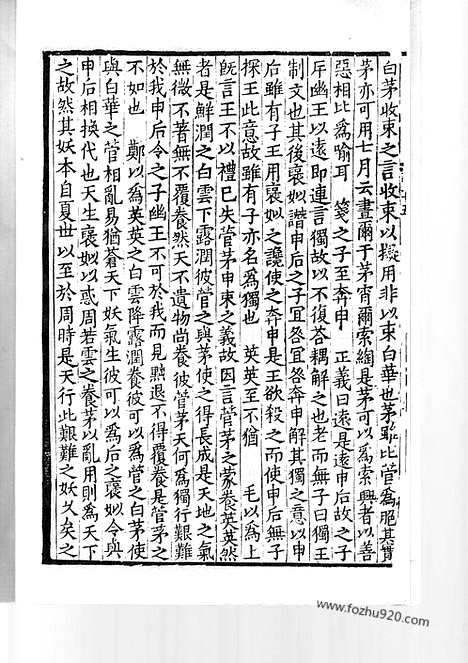 白茅收束之言收束以擬用非以束白華也茅比菅為脆其實
茅亦可用七月云晝爾于茅宵爾索綯是茅可以為索興者以善
惡相比爲喻耳　箋之子至奔申　正義曰遠是遠申后故之子
斥幽王以遠即連言獨故以不復荅耦解之也老而無子曰獨王
制文也其後褒姒譖申后之子宜咎宜咎奔申解其獨之意以申
后雖有子王用褒姒之讒使之奔申是王欲殺之而使申后無子
探王此意故雖有子亦名爲獨也　英英至不猶　毛以爲上
旣言王不以禮已失菅茅申束之義故因言菅茅之蒙養英英然
者是鮮潤之白雲下露潤彼菅之與茅使之得長成是天地之氣
無微不著無不覆養然天不遺物尚養彼菅茅天何爲獨行艱難
於我申后令之子幽王不可於我而見黜退不得覆養是菅茅之
不如也　鄭以爲英英之白雲降露潤養彼可以爲菅之白茅使
與白華之菅相亂易猶蒼天下妖氣生彼可以爲后之褒姒令與
申后相換代也天生褒姒以惑周若雲之養茅以亂用則爲天下
之故然其妖本自夏世以至於周時是天行此艱難之妖久矣之
www.fozhu920.com